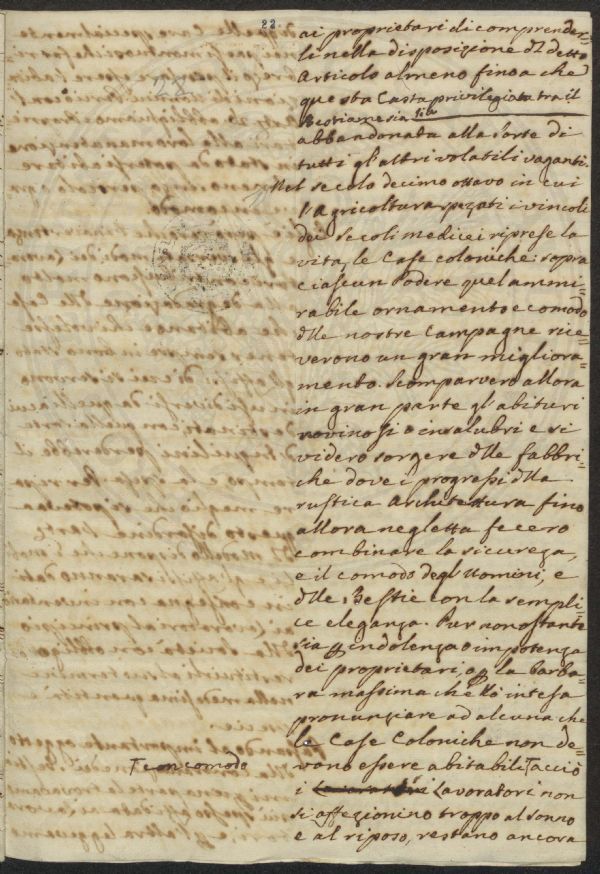 22
28
ai proprietari di comprender=
li nella disposizione dl detto
Articolo almeno fino a che
questa Casta privilegiata tra il
Bestiame sia
abbandonata alla sorte di
tutti gl'altri volatili vaganti.
Nel secolo decimo ottavo in cui
l'Agricoltura spezati i vincoli
dei secoli medicei riprese la
vita, le Case coloniche sopra
ciascun Podere quel ammi=
rabile ornamento e comodo
dlle nostre Campagne rice=
verono un gran migliora=
mento. Scomparvero allora
in gran parte gl'abituri
rovinosi o insalubri e si
videro sorgere dlle fabbri=
che dove i progressi dlla
rustica Architettura fino
allora negletta fecero
combinare la sicureza,
e il comodo degl'Uomini, e
dlle Bestie con la sempli=
ce eleganza. Pur nonostante
sia p indolenza o impotenza
dei proprietari, o p la barba=
ra massima che ho intesa
pronunziare ad alcuna che
le Case Coloniche non de=
vano essere abitabili Γ acciò
Γ e con comodo
i Lavoratori Lavoratori non
si affezionino troppo al sonno
e al riposo, restano ancora